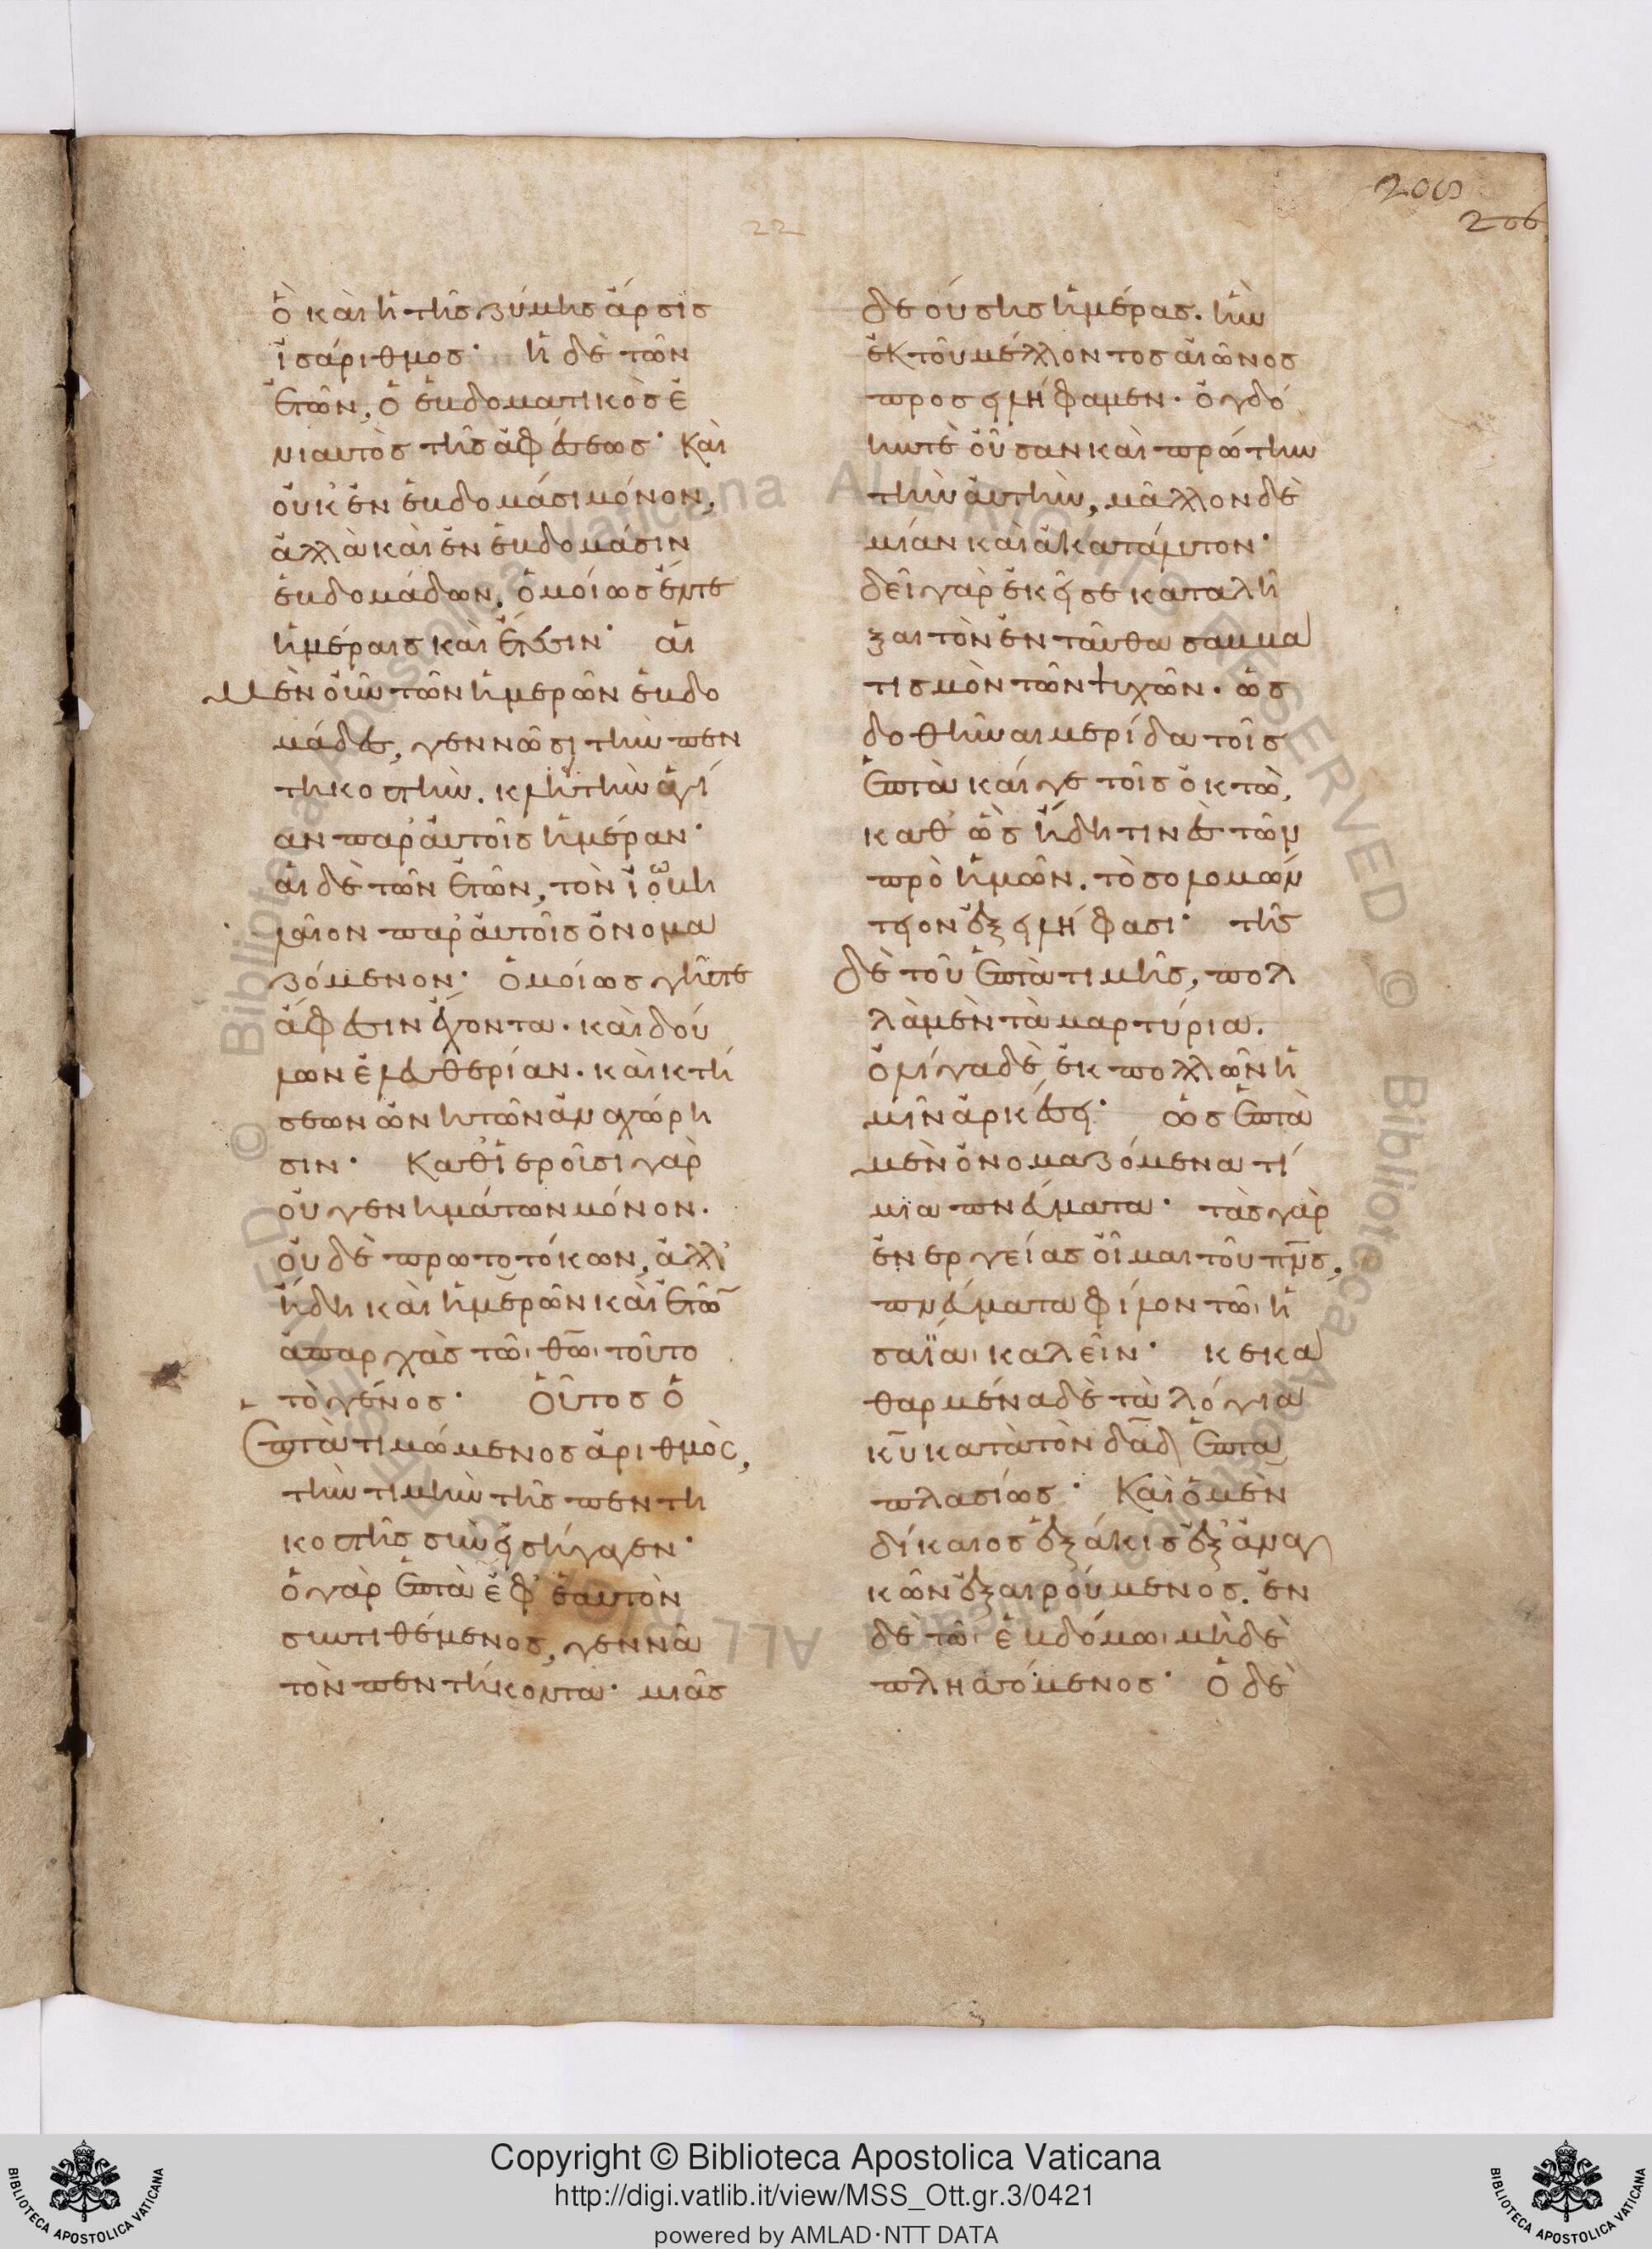 206
206
22
ὃ καὶ ἡ τῆς ζύμης ἄρσις
ἰσάριθμος· ἡ δὲ τῶν
ἐτῶν, ὁ ἑβδοματικὸς ἐ
νιαυτὸς τῆς ἀφέσεως· Καὶ
οὐκ ἐν ἑβδομάσι μόνον,
ἀλλὰ καὶ ἐν ἑβδομάσιν
ἑβδομάδων, ὁμοίως ἔν τε
ἡμέραις καὶ ἔτεσιν· αἱ
μὲν οὖν τῶν ἡμερῶν ἑβδο
μάδες, γεννῶσι τὴν πεν
τηκοστὴν. κλητὴν ἁγί
αν παρ' αὐτοῖς ἡμέραν·
αἱ δὲ τῶν ἐτῶν, τὸν ἰωβη
λαῖον παρ' αὐτοῖς ὀνομα
ζόμενον· ὁμοίως γῆς τε
ἄφεσιν ἔχοντα. καὶ δού
λων ἐλευθερίαν. καὶ κτή
σεων ὠνητῶν ἀναχώρη
σιν· Καθιεροῖ σι γὰρ
οὐ γενημάτων μόνον.
οὐδὲ πρωτοτόκων, ἀλλ'
ἤδη καὶ ἡμερῶν καὶ ἐτῶ̅
ἀπαρχὰς τῶι θ̅ω̅ι τοῦτο
τὸ γένος· Οὗτος ὁ
ἑπτὰ τιμώμενος ἀριθμὸς,
τὴν τιμὴν τῆς πεντη
κοστῆς συνεισήγαγεν·
ὁ γὰρ ἑπτὰ ἐφ' ἑαυτὸν
συντιθέμενος, γεννᾶ
τὸν πεντήκοντα· μιᾶς
δεούσης ἡμέρας. ἣν
ἐκ τοῦ μέλλοντος αἰῶνος
προσειλήφαμεν. ὀγδό
ην τὲ οὖσαν καὶ πρώτην
τὴν αὐτὴν, μᾶλλον δὲ
μίαν καὶ ἀκατάλυτον·
δεῖ γὰρ ἐκεῖσε καταλῆ
ξαι τὸν ἐνταῦθα σαββα
τισμὸν τῶν ψυχῶν. ὡς
δοθῆναι μερίδα τοῖς
ἑπτὰ καί γε τοῖς ὀκτὼ,
καθ' ὡς ἤδη τινὲς τῶν
πρὸ ἡμῶν. τὸ σολομών
τειον ἐξειλήφασι· τῆς
δὲ τοῦ ἑπτὰ τιμῆς, πολ
λὰ μὲν τὰ μαρτύρια.
ὀλίγα δὲ ἐκ πολλῶν ἡ
μῖν ἀρκέσει· ὡς ἑπτὰ
μὲν ὀνομαζόμενα τί
μια πνεύματα· τὰς γὰρ
ἐνεργείας οἶμαι τοῦ π̅ν̅ς̅,
πνεύματα φίλον τῶι ἡ
σαΐαι καλεῖν· κεκα
θαρμένα δὲ τὰ λόγια
κ̅υ̅ κατὰ τὸν δ̅α̅δ̅ ἑπτα
πλασίως· Καὶ ὁ μὲν
δίκαιος ἑξάκις ἐξ ἀναγ
κῶν ἐξαιρούμενος. ἐν
δὲ τῶι ἑβδόμωι μηδὲ
πλησσόμενος· Ὁ δὲ
© Biblioteca Apostolica Vaticana ALL RIGHTS RESERVED
Copyright © Biblioteca Apostolica Vaticana
http://digi.vatlib.it/view/MSS_Ott.gr.3/0421
powered by AMLAD·NTT DATA
BIBLIOTECA APOSTOLICA VATICANA
BIBLIOTECA APOSTOLICA VATICANA